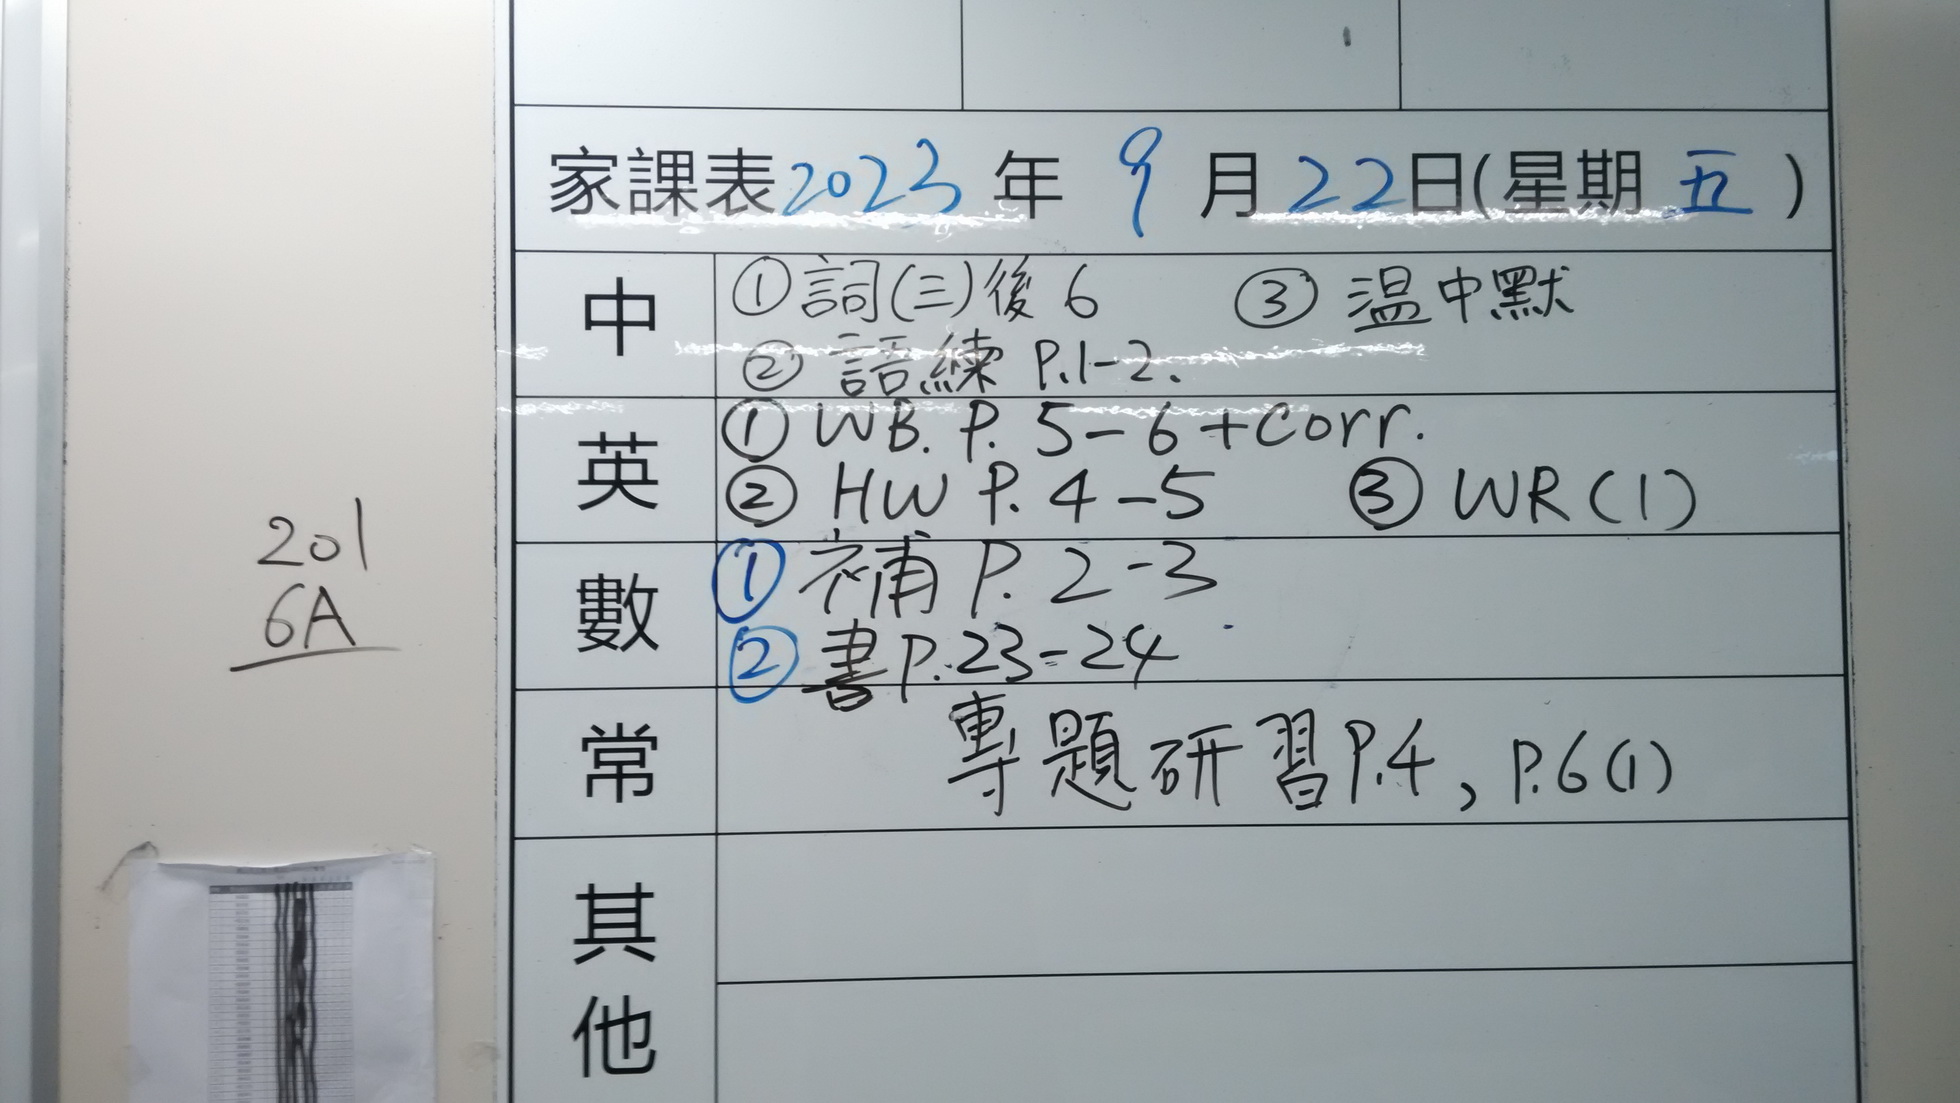 家課表2023年9月22日(星期五)
中
①詞(三)後6 ③溫中默
②語練 P.1-2.
英
①WB. P. 5-6+corr.
②HW P. 4-5 ③WR(1)
數
①補 P. 2-3
②書P.23-24
常
專題研習P.4, P.6(1)
其他
201
6A